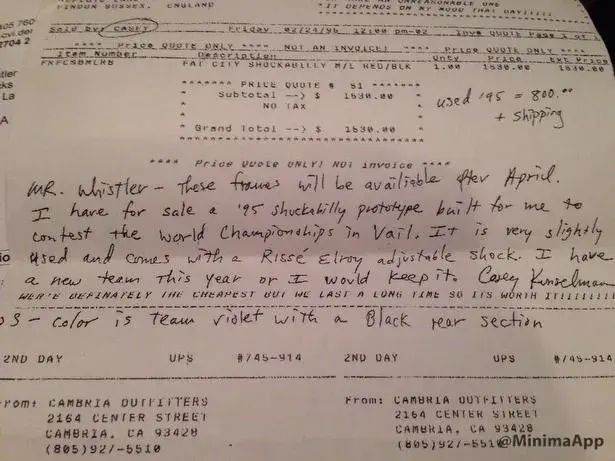 PINDON SUSSEX. ENGLAND
"IT DEPENDS ON MY MOOD THAT DAY!!!!!!
Sold by: CASEY Friday 02/24/96 12:00 pm-02 Invo QUOTE Page 1 of 1
**** Price QUOTE ONLY **** NOT AN INVOICE! **** Price QUOTE ONLY ****
Item Number Description Qnty Price Ext Price
FKFCSBMLRB FAT CITY SHOCKABILLY M/L RED/BLK 1.00 1530.00 1530.00
* PRICE QUOTE # 51 *
* Subtotal --> $ 1530.00 *
* NO TAX *
* Grand Total --> $ 1530.00 *
used '95 = 800.00
+ shipping
**** Price QUOTE ONLY! NOT Invoice ****
MR. Whistler - These frames will be availiable after April.
I have for sale a '95 shockabilly prototype built for me to
contest the World Championships in Vail. It is very slightly
used and comes with a Rissé Elroy adjustable shock. I have
a new team this year or I would keep it. Casey Kunselman
WE'RE DEFINATELY THE CHEAPEST BUT WE LAST A LONG TIME SO ITS WORTH IT!!!!!!!!!!
- Color is team violet with a Black rear section
2ND DAY UPS #745-914 2ND DAY UPS #745-914
From: CAMBRIA OUTFITTERS From: CAMBRIA OUTFITTERS
2164 CENTER STREET 2164 CENTER STREET
CAMBRIA, CA 93428 CAMBRIA, CA 93428
(805)927-5510 (805)927-5510
@MinimaApp